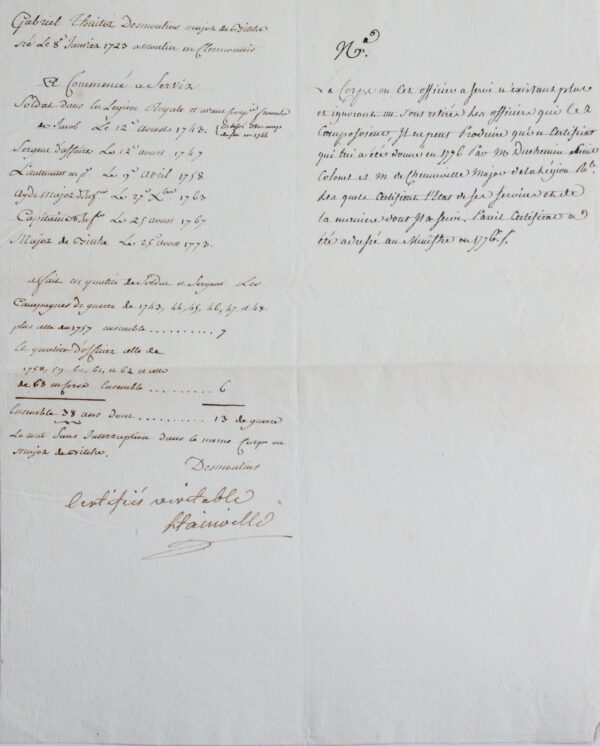 Gabriel Desmoulins major de
né Le 8e Janvier 1723 a moulin en Clermontois
A Commencé a Servir
Soldat dans la Legion Royale et avant Compie franche
de Jacob Le 12e aoust 1743.
Sergent d'affaire Le 12e aoust 1747
Lieutenant Le 9e Avril 1758
Ayde Major d'Infie Le 27e Xbre 1763
Capitaine d'Infie Le 25e aoust 1767
Major de Le 25e aoust 1773.
a fait en qualité de Soldat et Sergent Les
Campagnes de guerre de 1743, 44, 45, 46, 47, et 48
plus celle de 1757 ensemble .......... 7
En qualité d'officier celle de
1758, 59, 60, 61, et 62 et celle
de 63 en Corse Ensemble .......... 6
Ensemble 38 ans dont .......... 13 de guerre
Le tout Sans Interruption dans le meme Corps ou
major de
Desmoulins
Certifiés véritable
Nta
Le Corps ou Cet officier a Servi n'existant plus
et ignorant ou Sont retirés Les officiers qui le
Composoient, Il ne peut Produire qu'un Certificat
qui lui a été donné en 1776 Par M. Duchemin
Colonel et M. de Major de la Légion Rle.
Les quels Certifient l'état de Ses Services et de
la maniere dont Il a Servi. Pareil Certificat a
été adressé au Ministre en 1776.